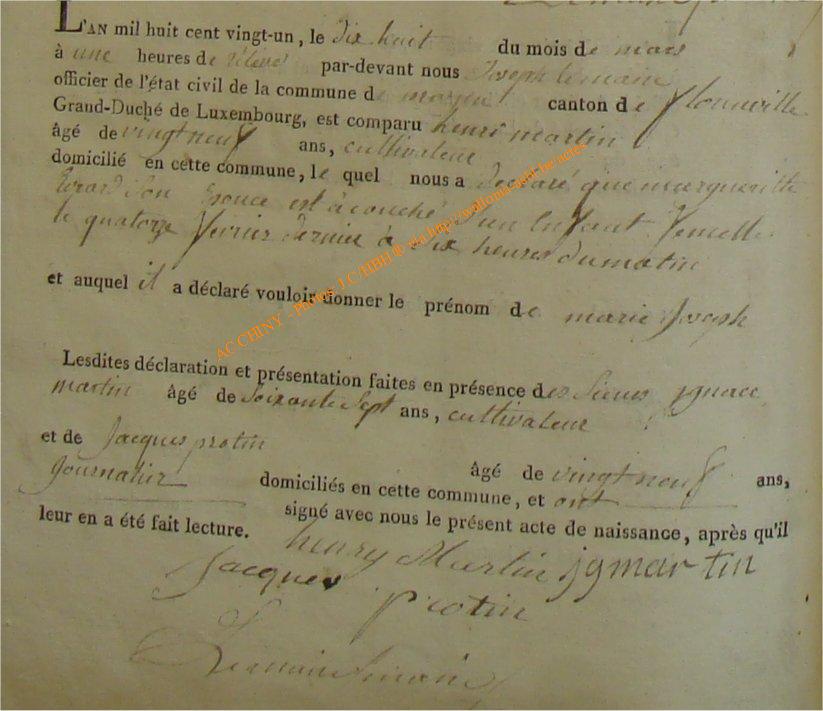 L'AN mil huit cent vingt-un, le dix huit du mois de mars
à une heures de par-devant nous Joseph lemaire
officier de l'état civil de la commune de canton de florenville
Grand-Duché de Luxembourg, est comparu henri martin
âgé de vingt neuf ans, cultivateur
domicilié en cette commune, le quel nous a declaré que margueritte
Evrard Son Epouce est acouché d'un Enfant femelle
le quatorze fevrier dernier à dix heures du matin
et auquel il a déclaré vouloir donner le prénom de marie Joseph
Lesdites déclaration et présentation faites en présence des Sieurs ignace
martin âgé de Soixante Sept ans, cultivateur
et de Jacques protin
âgé de vingt neuf ans,
Journalier domiciliés en cette commune, et ont
signé avec nous le présent acte de naissance, après qu'il
leur en a été fait lecture.
henry Martin jgmartin
Jacques protin
AC CHINY - Photos J.C/HBH® via http://wallonia.